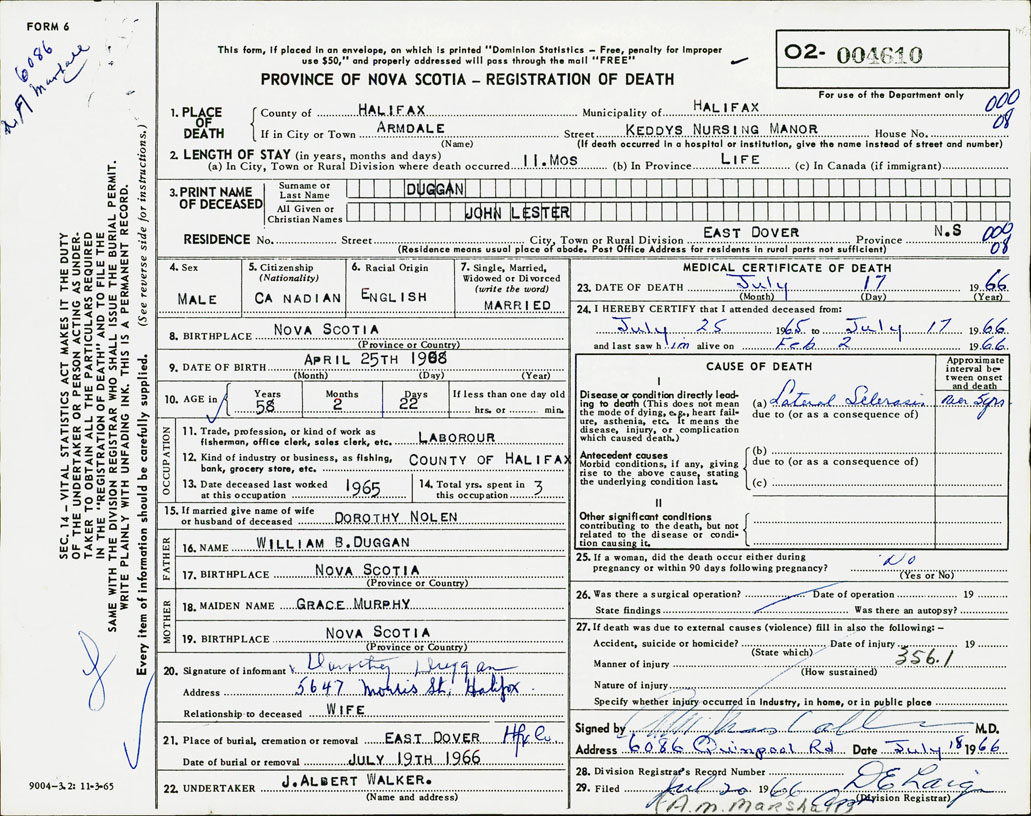 FORM 6
6086
This form, if placed in an envelope, on which is printed "Dominion Statistics – Free, penalty for improper
use $50," and properly addressed will pass through the mail "FREE"
PROVINCE OF NOVA SCOTIA – REGISTRATION OF DEATH
O2- 004610
For use of the Department only
1. PLACE OF DEATH
County of HALIFAX Municipality of HALIFAX 000
If in City or Town ARMDALE Street KEDDYS NURSING MANOR House No. 08
(Name) (If death occurred in a hospital or institution, give the name instead of street and number)
2. LENGTH OF STAY (in years, months and days)
(a) In City, Town or Rural Division where death occurred 11. MOS (b) In Province LIFE (c) In Canada (if immigrant)
3. PRINT NAME OF DECEASED
Surname or Last Name DUGGAN
All Given or Christian Names JOHN LESTER
RESIDENCE No. Street City, Town or Rural Division EAST DOVER Province N.S 000
(Residence means usual place of abode. Post Office Address for residents in rural parts not sufficient) 08
4. Sex
MALE
5. Citizenship
(Nationality)
CANADIAN
6. Racial Origin
ENGLISH
7. Single, Married,
Widowed or Divorced
(write the word)
MARRIED
8. BIRTHPLACE NOVA SCOTIA
(Province or Country)
9. DATE OF BIRTH APRIL 25TH 1908
(Month) (Day) (Year)
10. AGE in
Years Months Days If less than one day old
58 2 22 hrs. or min.
OCCUPATION
11. Trade, profession, or kind of work as
fisherman, office clerk, sales clerk, etc. LABOROUR
12. Kind of industry or business, as fishing,
bank, grocery store, etc. COUNTY OF HALIFAX
13. Date deceased last worked
at this occupation 1965
14. Total yrs. spent in
this occupation 3
15. If married give name of wife
or husband of deceased DOROTHY NOLEN
FATHER
16. NAME WILLIAM B. DUGGAN
17. BIRTHPLACE NOVA SCOTIA
(Province or Country)
MOTHER
18. MAIDEN NAME GRACE MURPHY
19. BIRTHPLACE NOVA SCOTIA
(Province or Country)
20. Signature of informant x Dorothy Duggan
Address 5647 Morris St, Halifox
Relationship to deceased WIFE
21. Place of burial, cremation or removal EAST DOVER Hfx Co.
Date of burial or removal JULY 19TH 1966
22. UNDERTAKER J. ALBERT WALKER.
(Name and address)
MEDICAL CERTIFICATE OF DEATH
23. DATE OF DEATH July 17 1966
(Month) (Day) (Year)
24. I HEREBY CERTIFY that I attended deceased from:
July 25 1965 to July 17 1966
and last saw him alive on Feb 2 1966
CAUSE OF DEATH
Approximate interval between onset and death
I
Disease or condition directly leading to death (This does not mean the mode of dying, e.g., heart failure, asthenia, etc. It means the disease, injury, or complication which caused death.)
(a) Lateral Sclerosis over 5yrs
due to (or as a consequence of)
Antecedent causes
Morbid conditions, if any, giving rise to the above cause, stating the underlying condition last.
(b)
due to (or as a consequence of)
(c)
II
Other significant conditions
contributing to the death, but not related to the disease or condition causing it.
25. If a woman, did the death occur either during
pregnancy or within 90 days following pregnancy? No
(Yes or No)
26. Was there a surgical operation? Date of operation 19
State findings Was there an autopsy?
27. If death was due to external causes (violence) fill in also the following: –
Accident, suicide or homicide? Date of injury 19
(State which)
Manner of injury 356.1
(How sustained)
Nature of injury
Specify whether injury occurred in industry, in home, or in public place
Signed by M.D.
Address 6086 Quinpool Rd Date July 18 1966
28. Division Registrar's Record Number
29. Filed Jul 20 1966
(Division Registrar)
(A.M. MARSHALL)
SEC. 14 – VITAL STATISTICS ACT MAKES IT THE DUTY
OF THE UNDERTAKER OR PERSON ACTING AS UNDER-
TAKER TO OBTAIN ALL THE PARTICULARS REQUIRED
IN THE "REGISTRATION OF DEATH" AND TO FILE THE
SAME WITH THE DIVISION REGISTRAR WHO SHALL ISSUE THE BURIAL PERMIT.
WRITE PLAINLY WITH UNFADING INK. THIS IS A PERMANENT RECORD.
Every item of information should be carefully supplied. (See reverse side for instructions.)
9004–3.2: 11-3-65